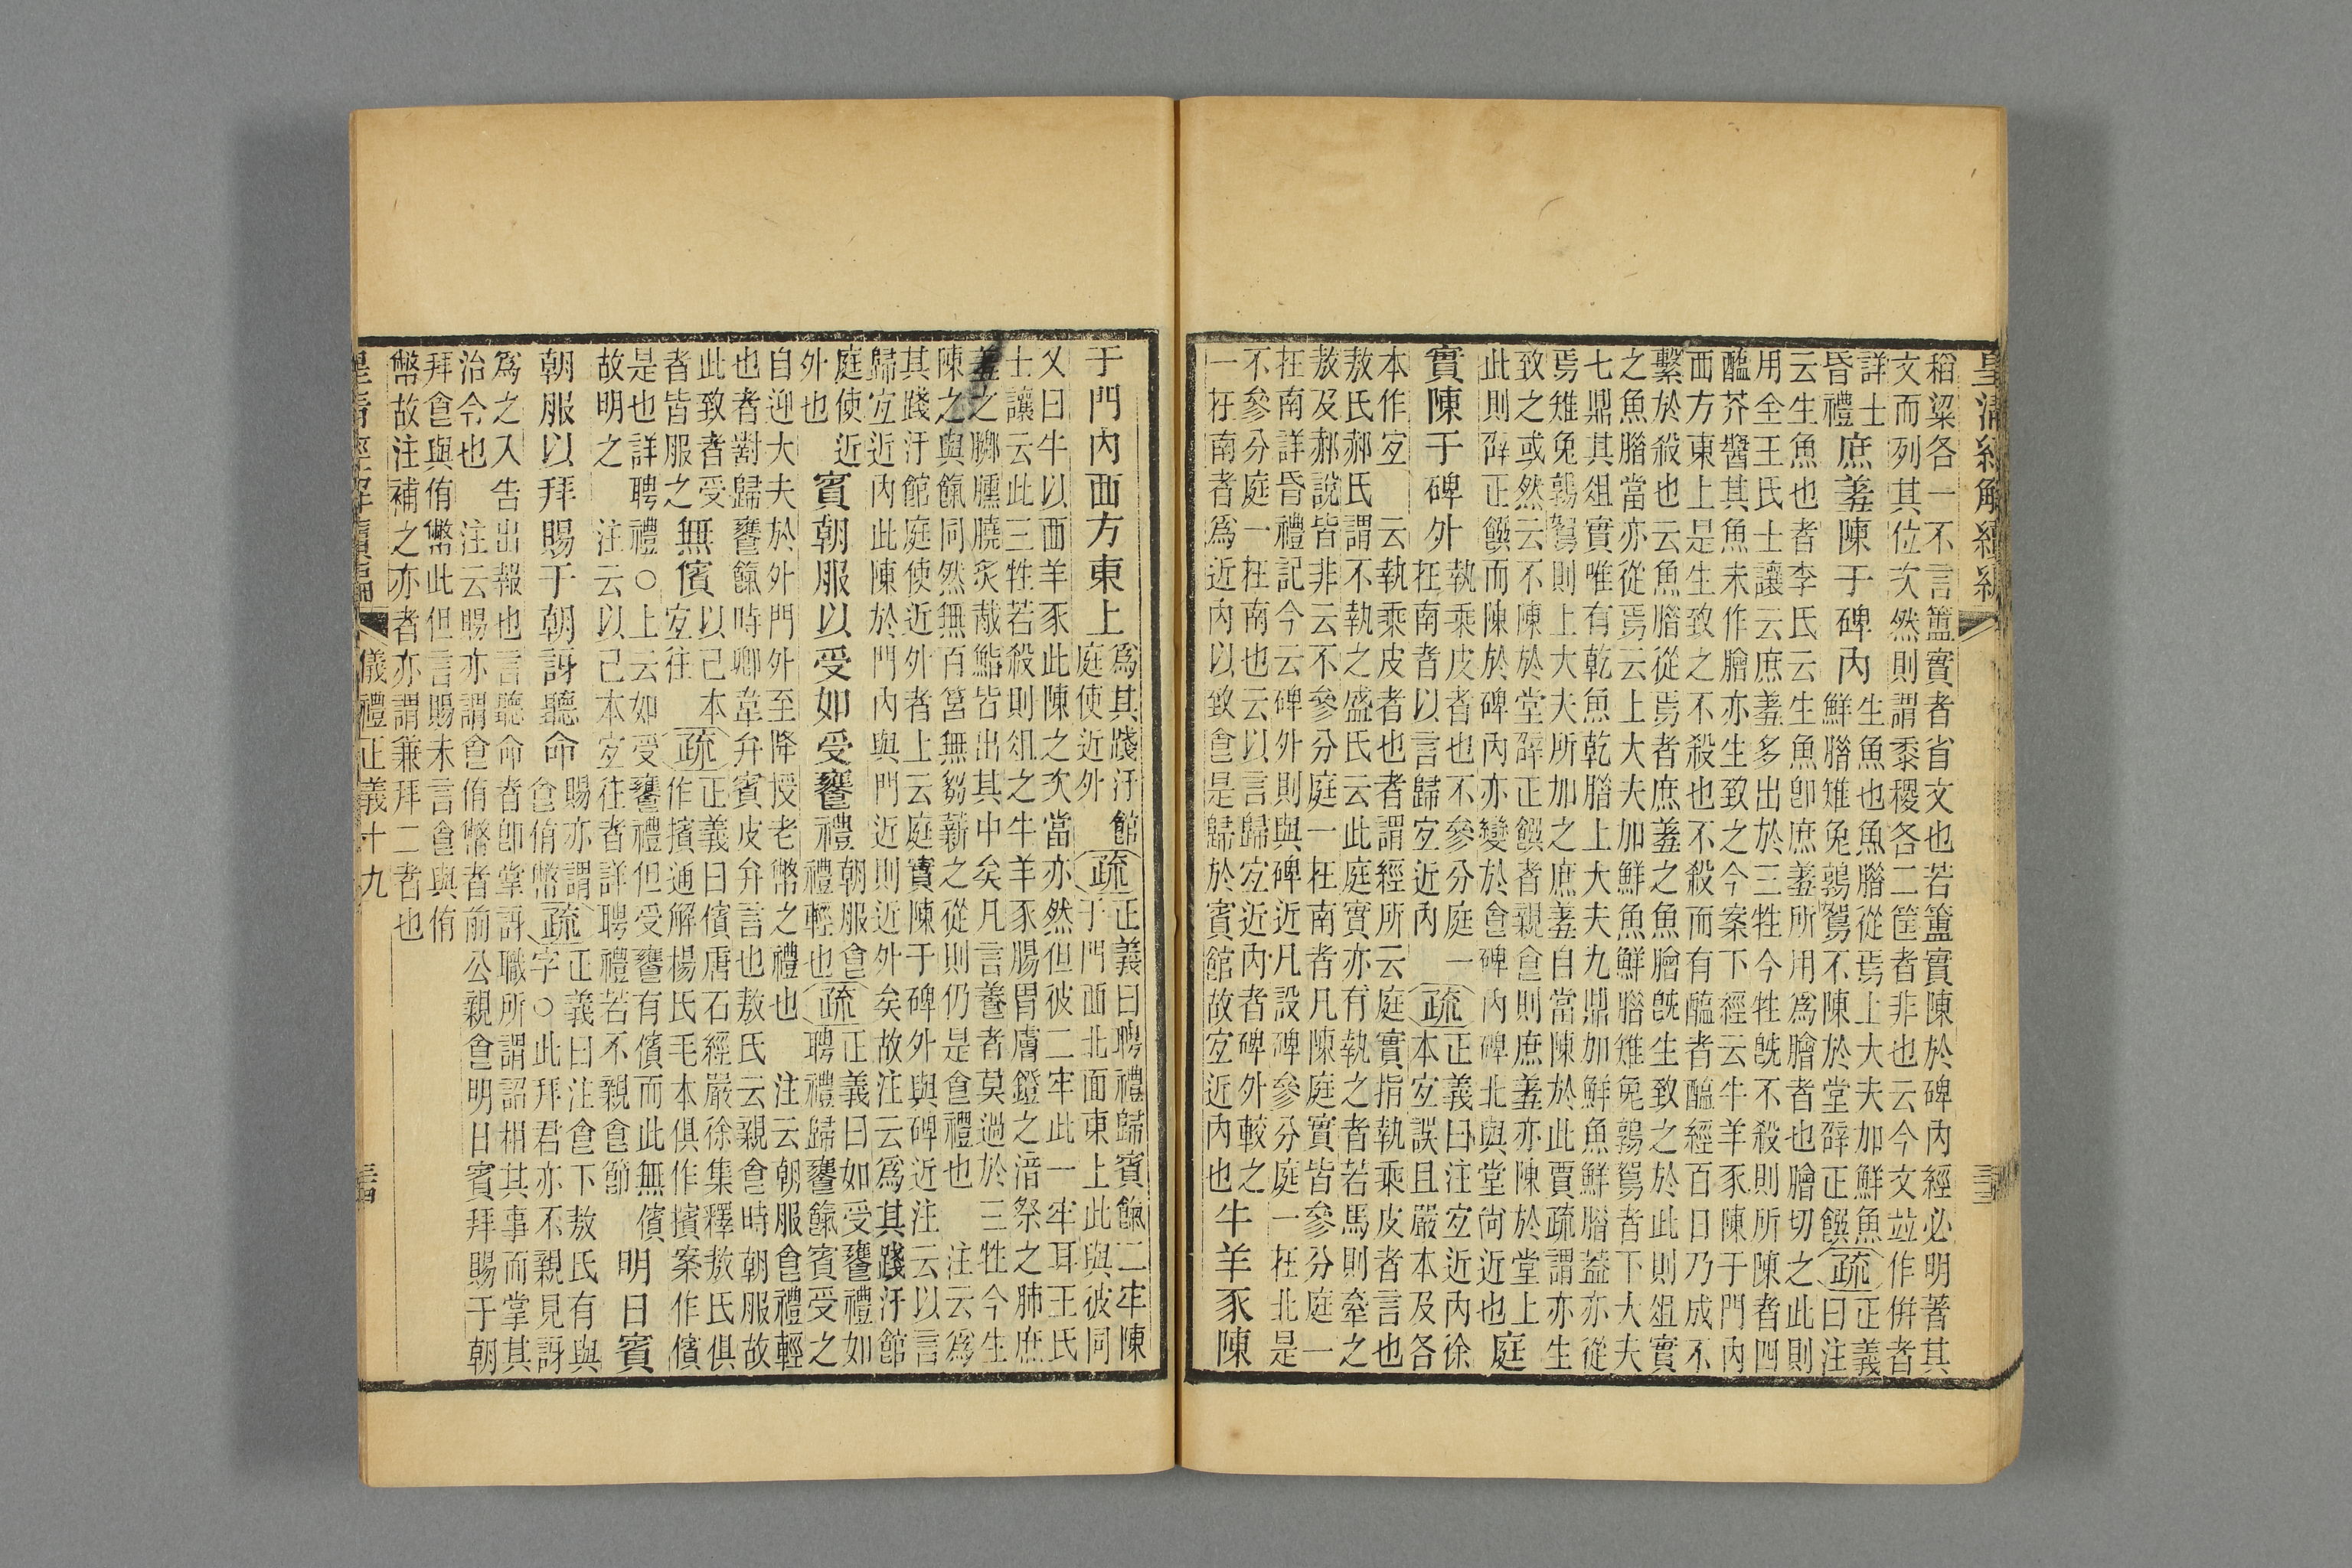 皇清經解續編
稻粱各一不言簠實者省文也若簠實陳於碑內經必明著其
文而列其位次然則謂黍稷各二筐者非也云今文竝作倂者
詳士
昏禮
庶羞陳于碑內
生魚也魚腊從焉上大夫加鮮魚
鮮腊雉兔鶉鴽不陳於堂辟正饌
疏
正義
曰注
云生魚也者李氏云生魚卽庶羞所用爲膾者也膾切之此則
用全王氏士讓云庶羞多出於三牲今牲旣不殺則所陳者四
醢芥醬其魚未作膾亦生致之今案下經云牛羊豕陳于門內
西方東上是生致之不殺也不殺而有醢者醢經百日乃成不
繫於殺也云魚腊從焉者庶羞之魚膾旣生致之於此則俎實
之魚腊當亦從焉云上大夫加鮮魚鮮腊雉兔鶉鴽者下大夫
七鼎其俎實唯有乾魚乾腊上大夫九鼎加鮮魚鮮腊蓋亦從
焉雉兔鶉鴽則上大夫所加之庶羞自當陳於此賈疏謂亦生
致之或然云不陳於堂辟正饌者親食則庶羞亦陳於堂上
此則辟正饌而陳於碑內亦變於食碑內碑北與堂尚近也
庭
實陳于碑外
執乘皮者也不參分庭一
在南者以言歸宐近內
疏
正義曰注宐近內徐
本宐誤且嚴本及各
本作宐 云執乘皮者也者謂經所云庭實指執乘皮者言也
敖氏郝氏謂不執之盛氏云此庭實亦有執之者若馬則牽之
敖及郝說皆非云不參分庭一在南者凡陳庭實皆參分庭一
在南詳昏禮記今云碑外則與碑近凡設碑參分庭一在北是
不參分庭一在南也云以言歸宐近內者碑外較之
一在南者爲近內以致食是歸於賓館故宐近內也
牛羊豕陳
三十三
于門內西方東上
爲其踐汙館
庭使近外
疏
正義曰聘禮歸賓餼二牢陳
于門西北面東上此與彼同
又曰牛以西羊豕此陳之次當亦然但彼二牢此一牢耳王氏
士讓云此三牲若殺則俎之牛羊豕腸胃膚鐙之湆祭之肺庶
羞之膷臐膮炙胾鮨皆出其中矣凡言養者莫過於三牲今生
陳之與餼同然無百筥無芻薪之從則仍是食禮也 注云爲
其踐汙館庭使近外者上云庭實陳于碑外與碑近注云以言
歸宐近內此陳於門內與門近則近外矣故注云爲其踐汙館
庭使近
外也
賓朝服以受如受饔禮
朝服食
禮輕也
疏
正義曰如受饔禮如
聘禮歸饔餼賓受之
自迎大夫於外門外至降授老幣之禮也 注云朝服食禮輕
也者對歸饔餼時卿韋弁賓皮弁言也敖氏云親食時朝服故
此致者受
者皆服之
無儐
以己本
宐往
疏
正義曰儐唐石經嚴徐集釋敖氏俱
作擯通解楊氏毛本俱作擯案作儐
是也詳聘禮○上云如受饔禮但受饔有儐而此無儐
故明之 注云以己本宐往者詳聘禮若不親食節
明日賓
朝服以拜賜于朝訝聽命
賜亦謂
食侑幣
疏
正義曰注食下敖氏有與
字○此拜君亦不親見訝
爲之入告出報也言聽命者卽掌訝職所謂詔相其事而掌其
治令也 注云賜亦謂食侑幣者前公親食明日賓拜賜于朝
拜食與侑幣此但言賜未言食與侑
幣故注補之亦者亦謂兼拜二者也
皇清經解續編
儀禮正義十九
三十四